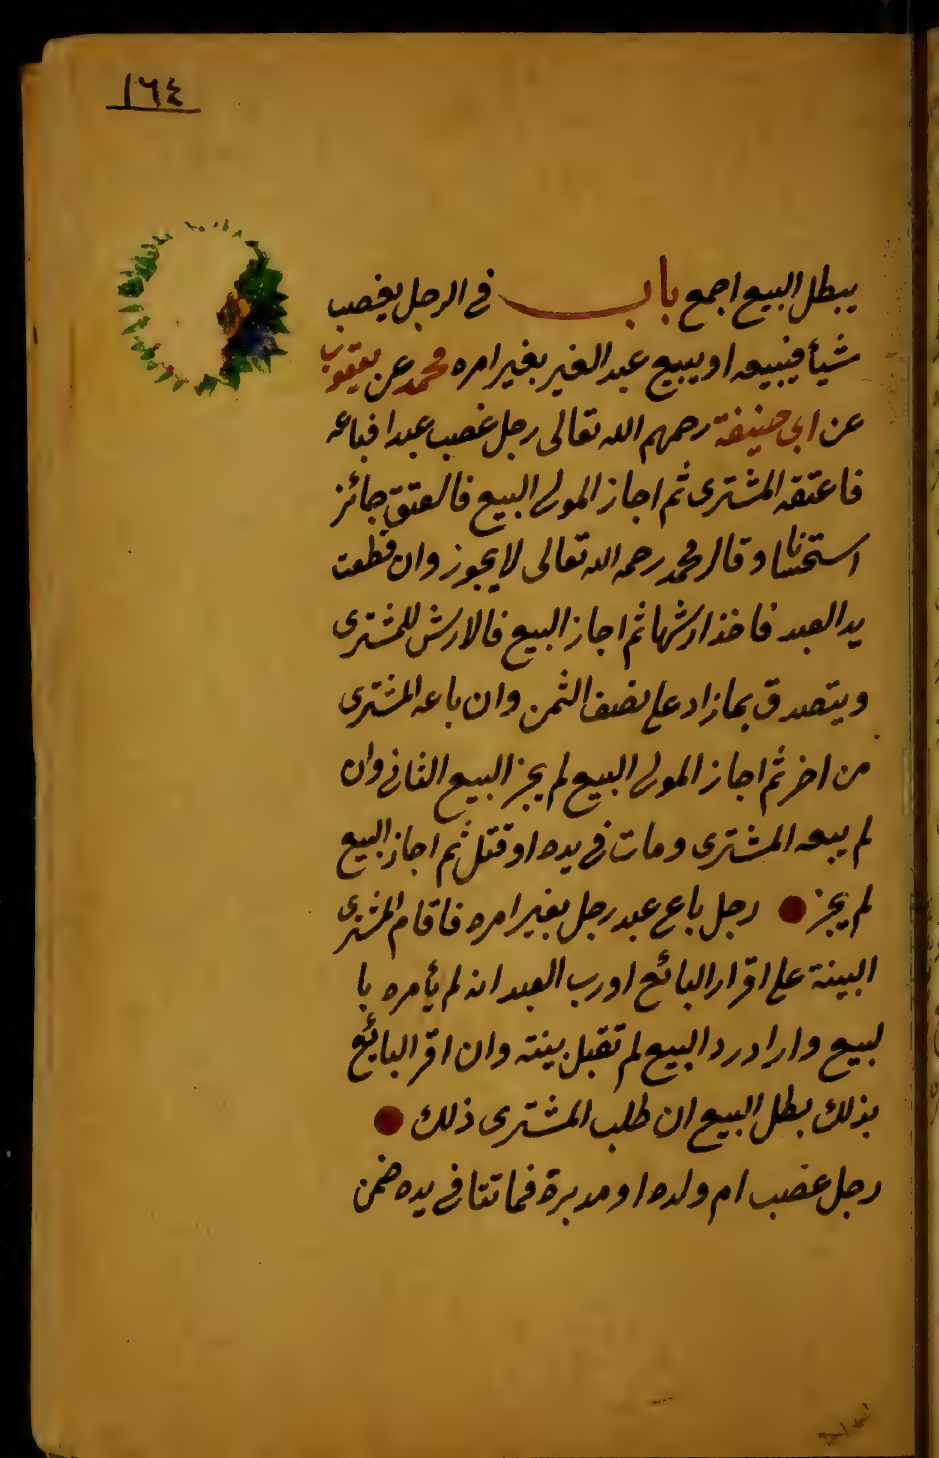 ١٦٤
يبطل البيع اجمع باب في الرجل يغصب
شيأ فيبيعه او يبيع عبد الغير بغير امره محمد عن يعقوب
عن ابي حنيفة رحمهم الله تعالى رجل غصب عبدا فباعه
فاعتقه المشترى ثم اجاز المولى البيع فالعتق جائز
استحسانا وقال محمد رحمه الله تعالى لا يجوز وان قطعت
يد العبد فاخذ ارشها ثم اجاز البيع فالارش للمشترى
ويتصدق بما زاد على نصف الثمن وان باعه المشترى
من اخر ثم اجاز المولى البيع لم يجز البيع الثانى وان
لم يبعه المشترى ومات في يده او قتل ثم اجاز البيع
لم يجز رجل باع عبد رجل بغير امره فاقام المشترى
البينة على اقرار البائع او رب العبد انه لم يأمره با
لبيع واراد رد البيع لم تقبل بينته وان اقر البائع
بذلك بطل البيع ان طلب المشترى ذلك
رجل غصب ام ولده او مدبرة فماتتا في يده ضمن